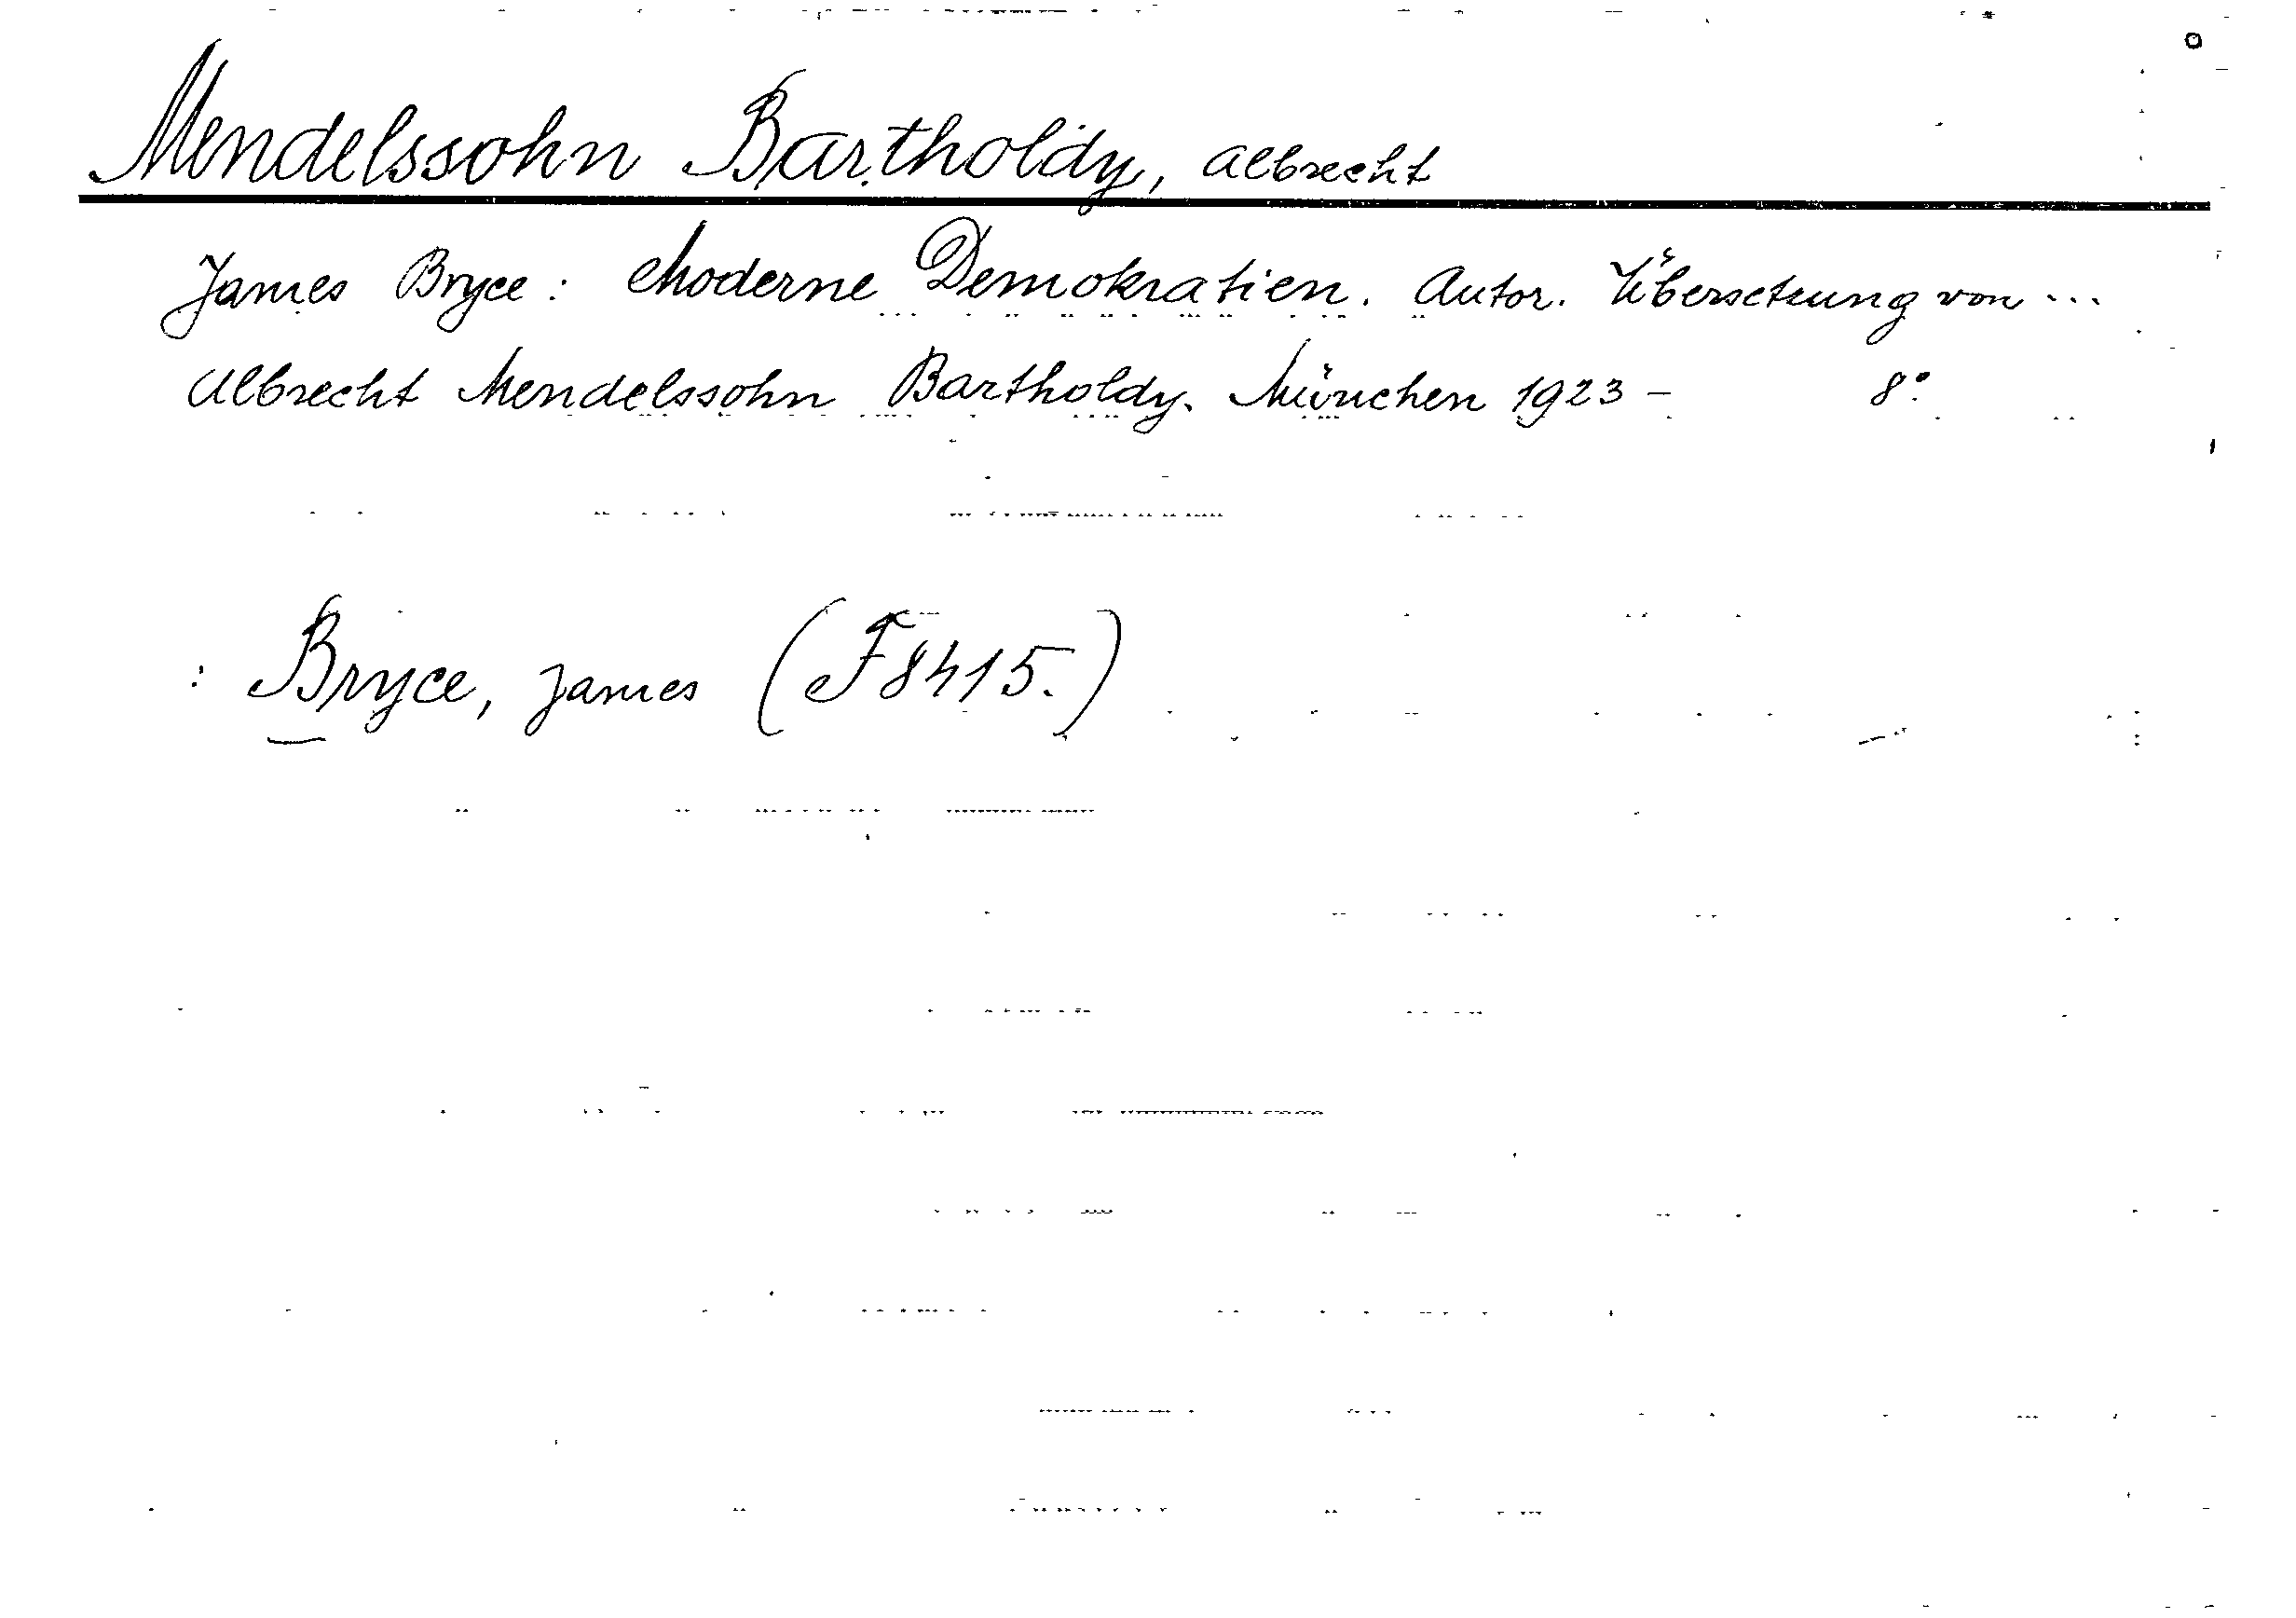 Mendelssohn Bartholdy, Albrecht
James Bryce: Moderne Demokratien. Autor. Übersetzung von ...
Albrecht Mendelssohn Bartholdy. München 1923 - 8°.
: Bryce, James (F8415.)